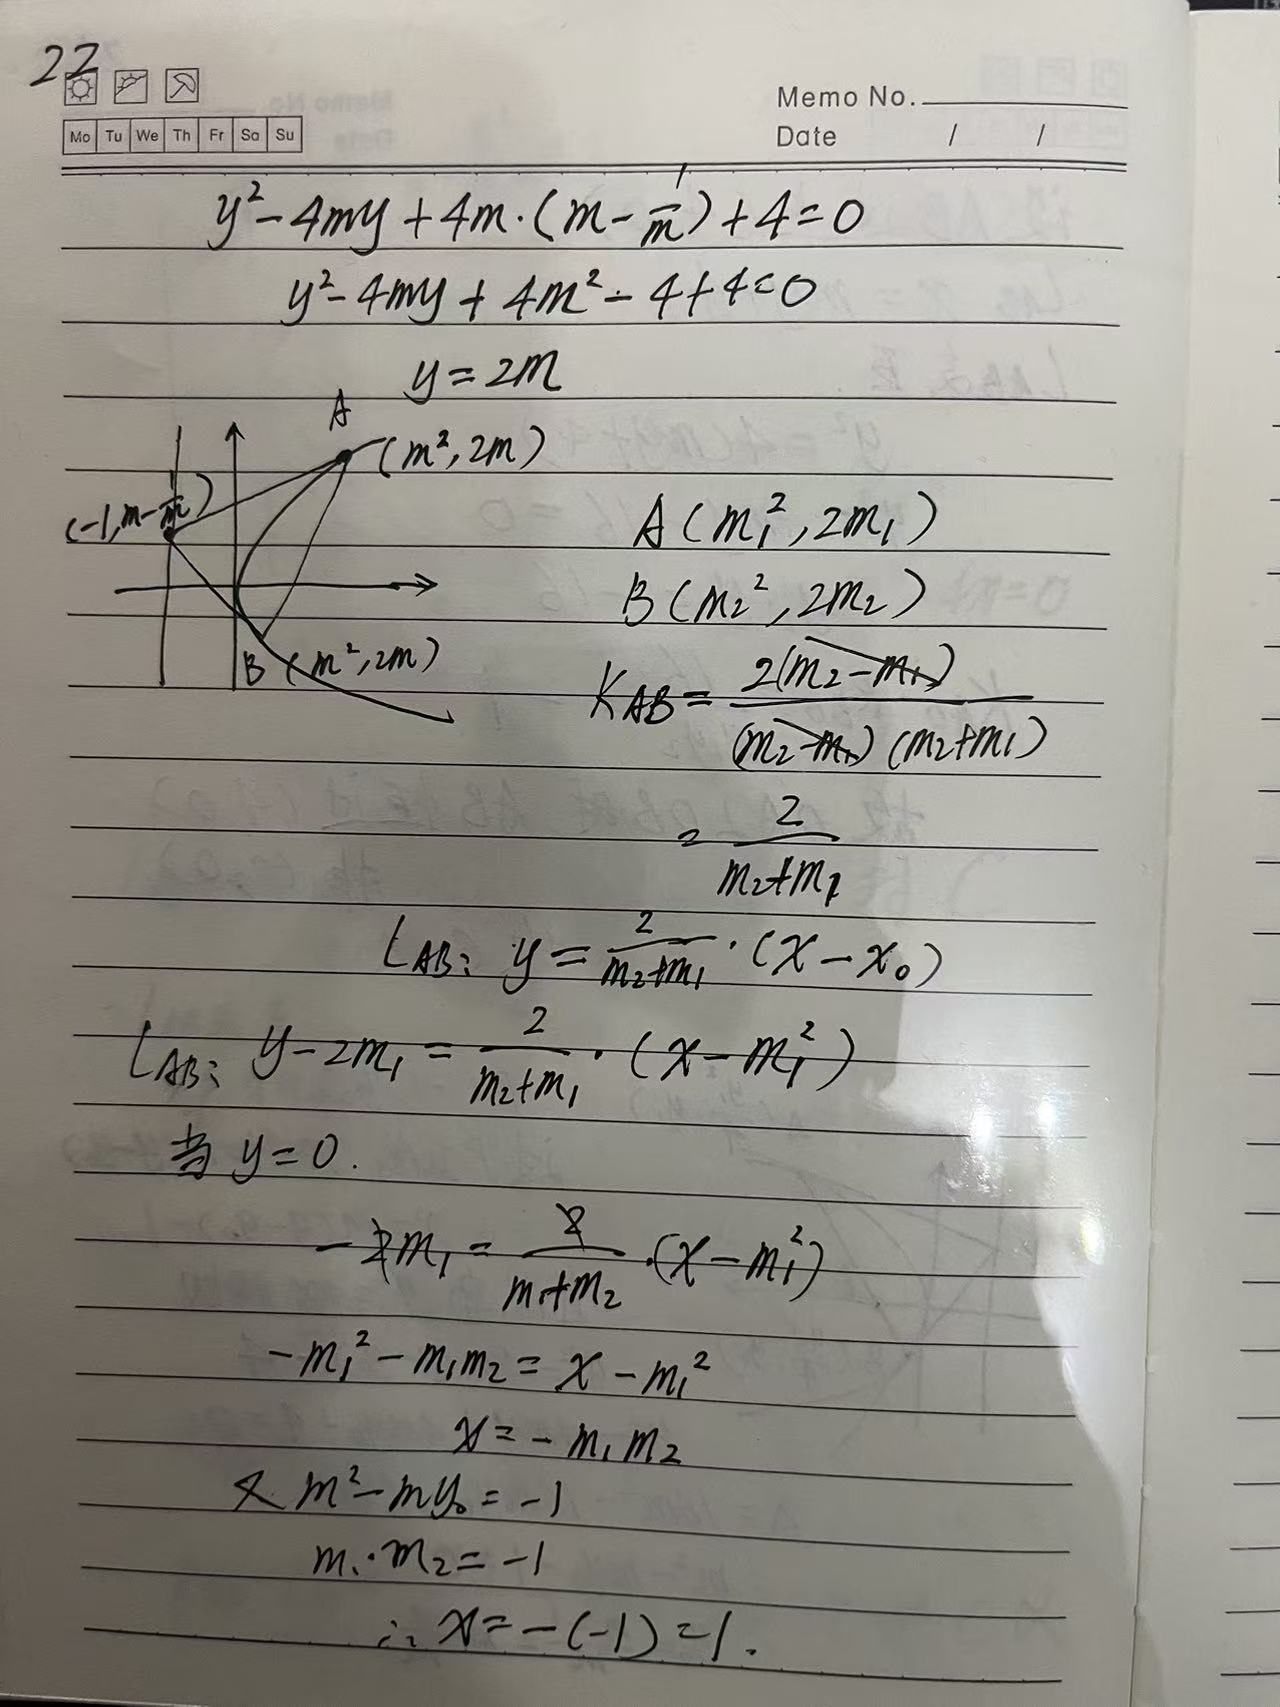 22
Memo No.
Mo Tu We Th Fr Sa Su
Date / /
y²-4my+4m·(m-1/m)+4=0
y²-4my+4m²-4+4=0
y=2m
A
(m²,2m)
(-1,m-1/m)
A(m₁²,2m₁)
B(m₂²,2m₂)
B (m²,2m)
K_AB=2(m₂-m₁)/(m₂-m₁)(m₂+m₁)
=2/(m₂+m₁)
L_AB: y=2/(m₂+m₁)·(x-x₀)
L_AB: y-2m₁=2/(m₂+m₁)·(x-m₁²)
当y=0.
-2m₁=2/(m₁+m₂)·(x-m₁²)
-m₁²-m₁m₂=x-m₁²
x=-m₁m₂
又 m²-my₀=-1
m₁·m₂=-1
∴x=-(-1)=1.